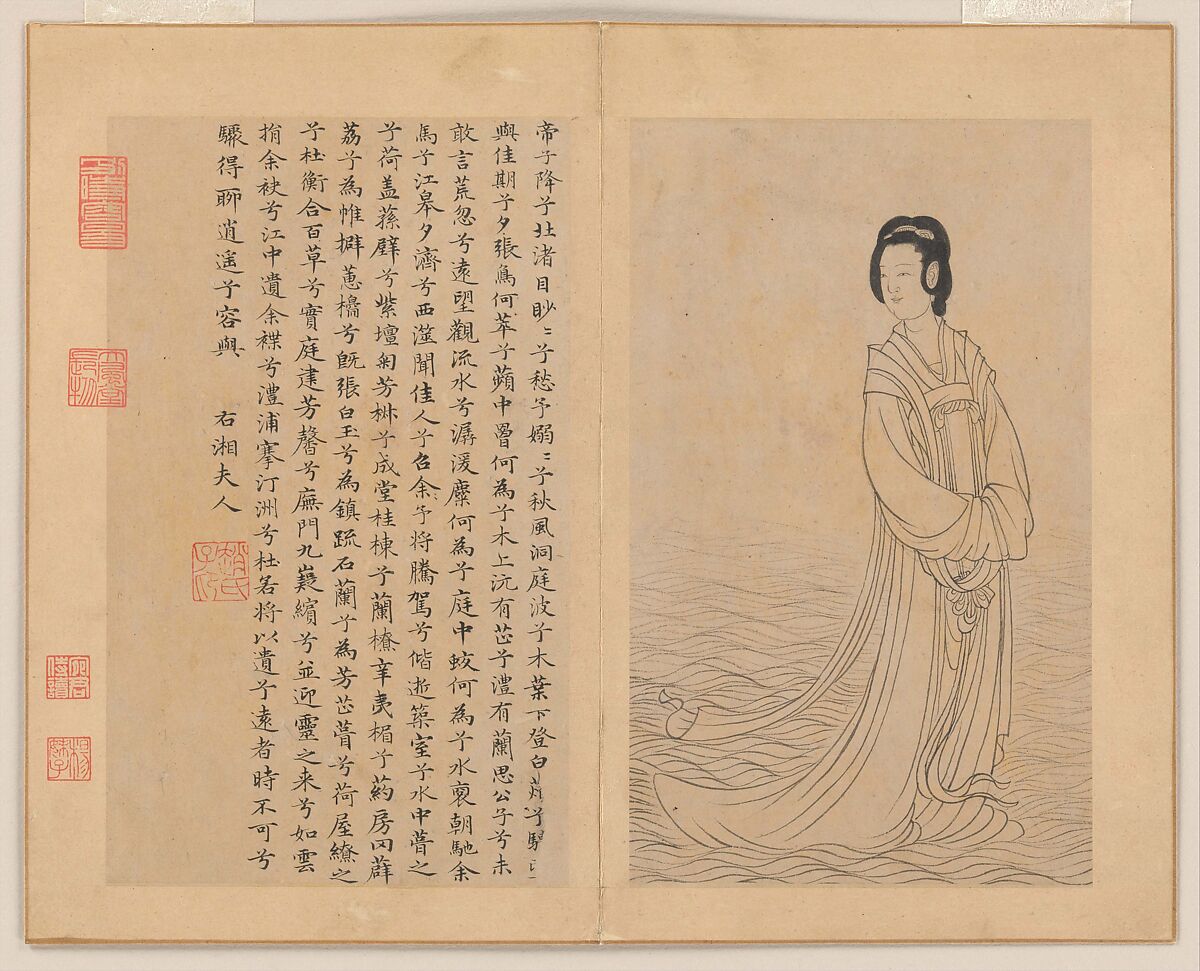 帝子降兮北渚目眇〻兮愁予嫋〻兮秋風洞庭波兮木葉下登白薠兮騁
與佳期兮夕張鳥何萃兮蘋中罾何為兮木上沅有芷兮澧有蘭思公子兮未
敢言荒忽兮遠望觀流水兮潺湲麋何為兮庭中蛟何為兮水裔朝馳余
馬兮江皋夕濟兮西澨聞佳人兮召余予将騰駕兮偕逝築室兮水中葺之
兮荷盖蓀壁兮紫壇菊芳椒兮成堂桂棟兮蘭橑辛夷楣兮葯房罔薜
荔兮為帷擗蕙櫋兮既張白玉兮為鎮疏石蘭兮為芳芷葺兮荷屋繚之
兮杜衡合百草兮實庭建芳馨兮廡門九嶷繽兮並迎靈之来兮如雲
捐余袂兮江中遺余褋兮澧浦搴汀洲兮杜若将以遺兮遠者時不可兮
驟得聊逍遥兮容與
右湘夫人